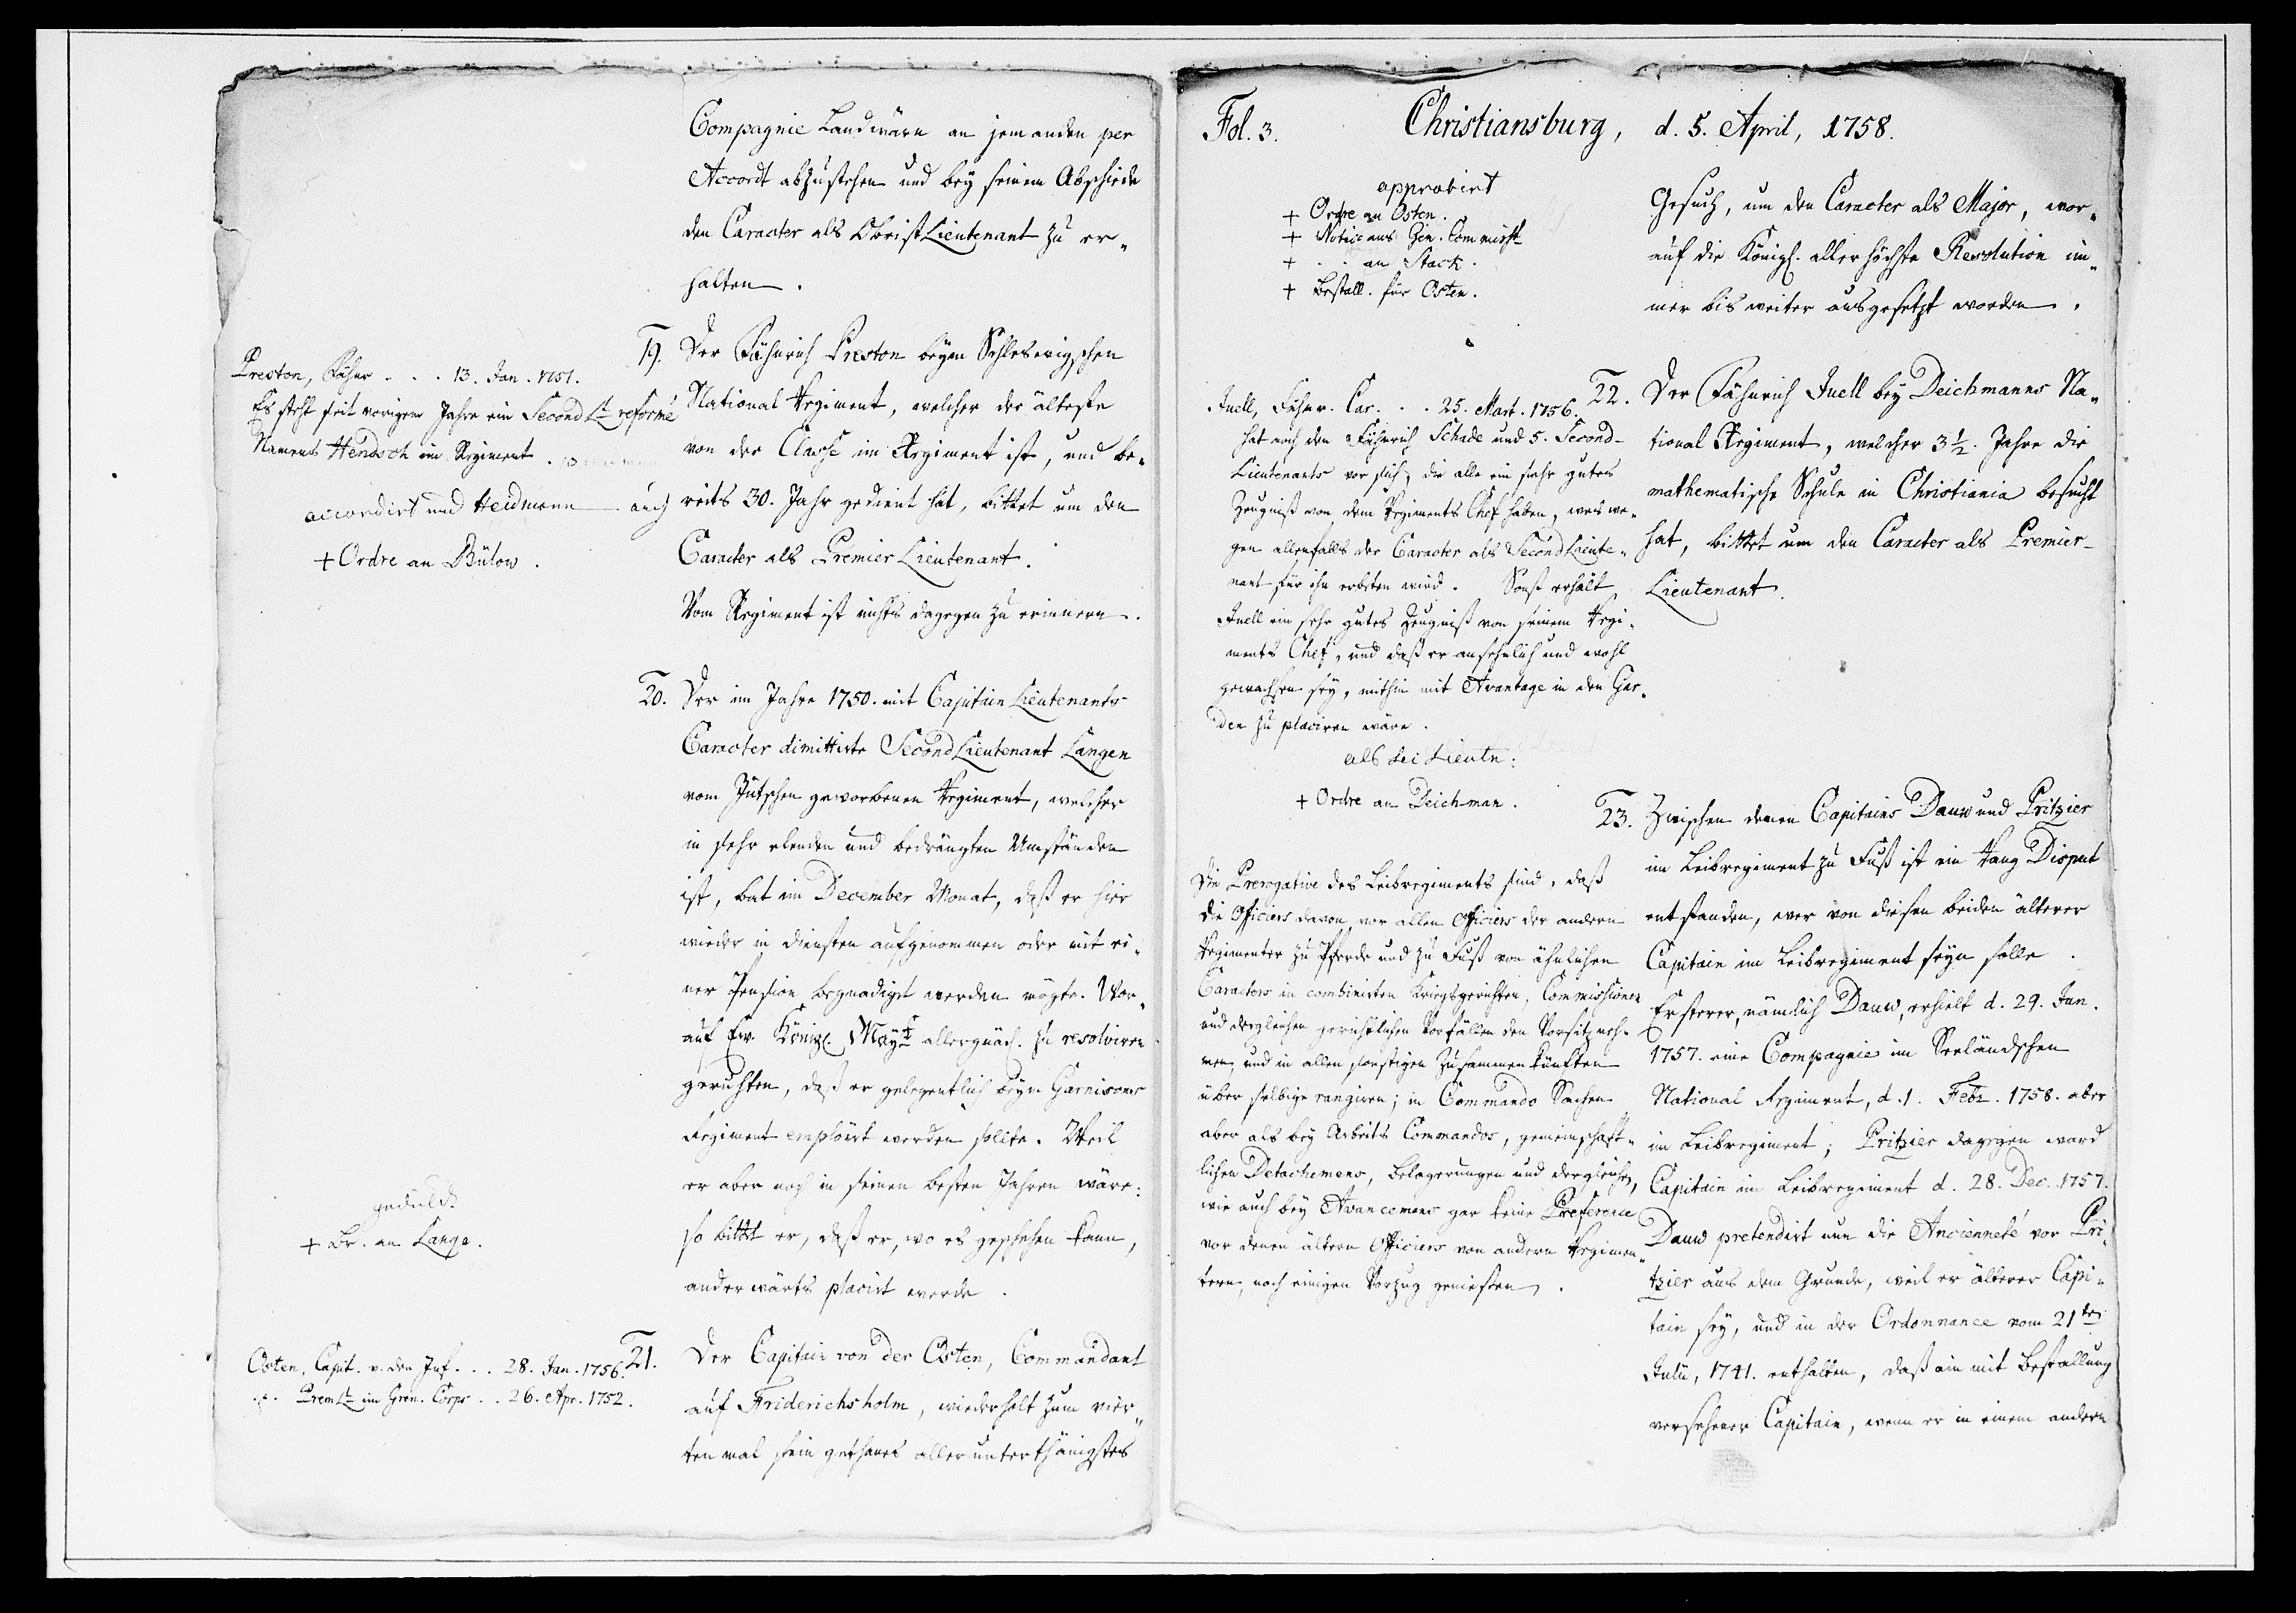 Compagnie Landwärn an jemanden per
Accordt abzustehen und bey seinem Abschiede
den Caracter als ObristLieutenant zu er-
halten.
19. Der Fähnrich Preston beym Schleswigschen
National Regiment, welcher der älteste
von der Classe im Regiment ist, und be-
reits 30. Jahr gedient hat, bittet um den
Caracter als Premier Lieutenant.
Vom Regiment ist nichts dagegen zu erinnern.
Preston, Fähnr . . . 13. Jan. 1751.
Es steht seit vorigem Jahre ein Second Lt reformé
Namens Hendsch im Regiment.
accordirt und Heidmann auch
+ Ordre an Bülow.
20. Der im Jahre 1750. mit Capitain Lieutenants
Caracter dimittirte Second Lieutenant Langen
vom Jütschen geworbenen Regiment, welcher
in sehr elenden und bedrängten Umständen
ist, bat im December Monat, daß er hier
wieder in diensten aufgenommen oder mit ei-
ner Pension begnadigt werden mögte. Wor-
auf Ew. Königl. Mayt allergnäd. zu resolviren
geruhten, daß er gelegentlich beym Garnisons
Regiment emploirt werden sollte. Weil
er aber noch in seinen besten Jahren wäre:
so bittet er, daß er, wo es geschehen kann,
anderwärts placirt werde.
geduld.
+ Br. an Lange.
21. Der Capitain von der Osten, Commandant
auf Friderichsholm, wiederholt zum vier-
ten mal sein gethanes allerunterthänigstes
Osten, Capit. v. der Inf. . . 28. Jan. 1756.
Prem Lt im Gren. Corps . . 26. Apr. 1752.
Fol. 3. Christiansburg, d. 5. April, 1758.
Gesuch, um den Caracter als Major, wor-
auf die Königl. allerhöchste Resolution im-
mer bis weiter ausgesetzt worden.
approbirt
+ Ordre an Osten.
+ Notice ans Gen. Commisst
+ . . an Stack.
+ Bestall. für Osten.
22. Der Fähnrich Juell bey Deichmanns Na-
tional Regiment, welcher 3½. Jahre die
mathematische Schule in Christiania besucht
hat, bittet um den Caracter als Premier-
Lieutenant.
Juell, Fähnr. Car. . . 25. Mart. 1756.
hat noch den Fähnrich Schade und 5. Second-
Lieutenants vor sich, die alle ein sehr gutes
Zeugniß von dem Regiments Chef haben, wes we-
gen allenfalls der Caracter als Second Lieute-
nant für ihn erbeten wird. Sonst erhält
Juell ein sehr gutes Zeugniß von seinem Regi-
ments Chef, und daß er ansehnlich und wohl
gewachsen sey, mithin mit Avantage in den Gar-
den zu placiren wäre.
als Lieutn:
+ Ordre an Deichman.
23. Zwischen denen Capitains Dauw und Pritzier
im Leibregiment zu Fuß ist ein Rang Disput
entstanden, wer von diesen beiden älterer
Capitain im Leibregiment seyn solle.
Ersterer, nämlich Dauw, erhielt d. 29. Jun.
1757. eine Compagnie im Seeländschen
National Regiment, d. 1. Febr. 1758. aber
im Leibregiment; Pritzier dagegen ward
Capitain im Leibregiment d. 28. Dec. 1757.
Dauw pretendirt nun die Ancienneté vor Pri-
tzier aus dem Grunde, weil er älterer Capi-
tain sey, und in der Ordonnance vom 21ten
Julii, 1741. enthalten, daß ein mit Bestallung
versehener Capitain, wenn er in einem andern
Die Prerogative des Leibregiments sind, daß
die Officiers davon vor allen Officiers der andern
Regimenter zu Pferde und zu Fuß von ähnlichen
Caracters in combinirten Kriegsgerichten, Commissionen
und dergleichen gerichtlichen Vorfällen den Vorsitz neh-
men, und in allen sonstigen Zusammenkünften
über selbige rangiren; in Commando Sachen
aber als bey Arbeits Commandos, gemeinschaft-
lichen Detachemens, Belagerungen und dergleichen,
wie auch bey Avancemens gar keine Preference
vor denen ältern Officiers von andern Regimen-
tern, noch einigen Vorzug geniessen.